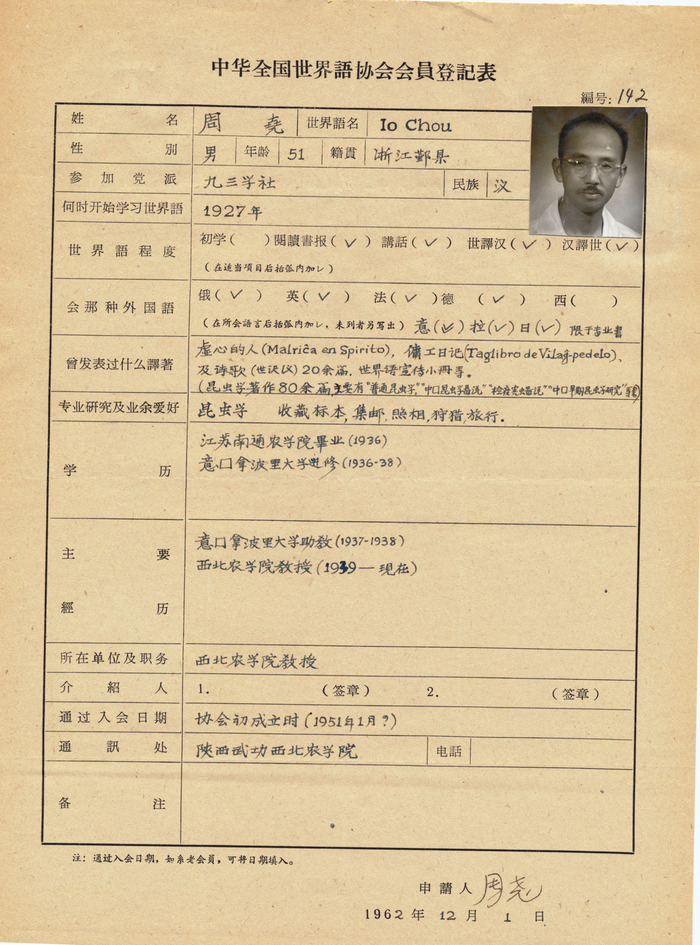 中华全国世界語协会会員登記表
編号: 142
姓 名 周 堯 世界語名 Io Chou
性 別 男 年龄 51 籍貫 浙江鄞县
参 加 党 派 九三学社 民族 汉
何时开始学习世界語 1927年
世 界 語 程 度 初学( )閱讀書报(✓)講話(✓) 世譯汉(✓)汉譯世(✓)
(在适当項目后括弧內加✓)
会那种外国語 俄(✓) 英(✓) 法(✓)德 (✓) 西( )
(在所会語言后括弧內加✓,未列者另写出) 意(✓)拉(✓)日(✓) 限于专业書
曾发表过什么譯著 虚心的人(Malriĉa en Spirito), 傭工日记(Taglibro de Vilaĝ-pedelo)、
及诗歌(世汉汉)20余篇, 世界语宣传小冊等。
(昆虫学著作80余篇,主要有"普通昆虫学""中囗昆虫学番况""检疫害虫番况""中囗早期昆虫学研究"等書)
专业研究及业余爱好 昆虫学 收藏标本,集邮,照相,狩猎,旅行.
学 历 江苏南通农学院畢业(1936)
意囗拿波里大学进修(1936-38)
主 要 意囗拿波里大学助教(1937-1938)
西北农学院教授(1939—现在)
經 历
所在单位及职务 西北农学院教授
介 紹 人 1. (签章) 2. (签章)
通过入会日期 协会初成立时(1951年1月?)
通 訊 处 陕西武功西北农学院 电話
备 注
注:通过入会日期,如系老会員,可将日期填入。
申請人 周尧
1962 年 12 月 1 日